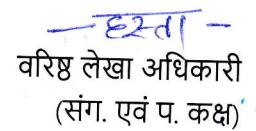 — हस्ता —
वरिष्ठ लेखा अधिकारी
(संग. एवं प. कक्ष)